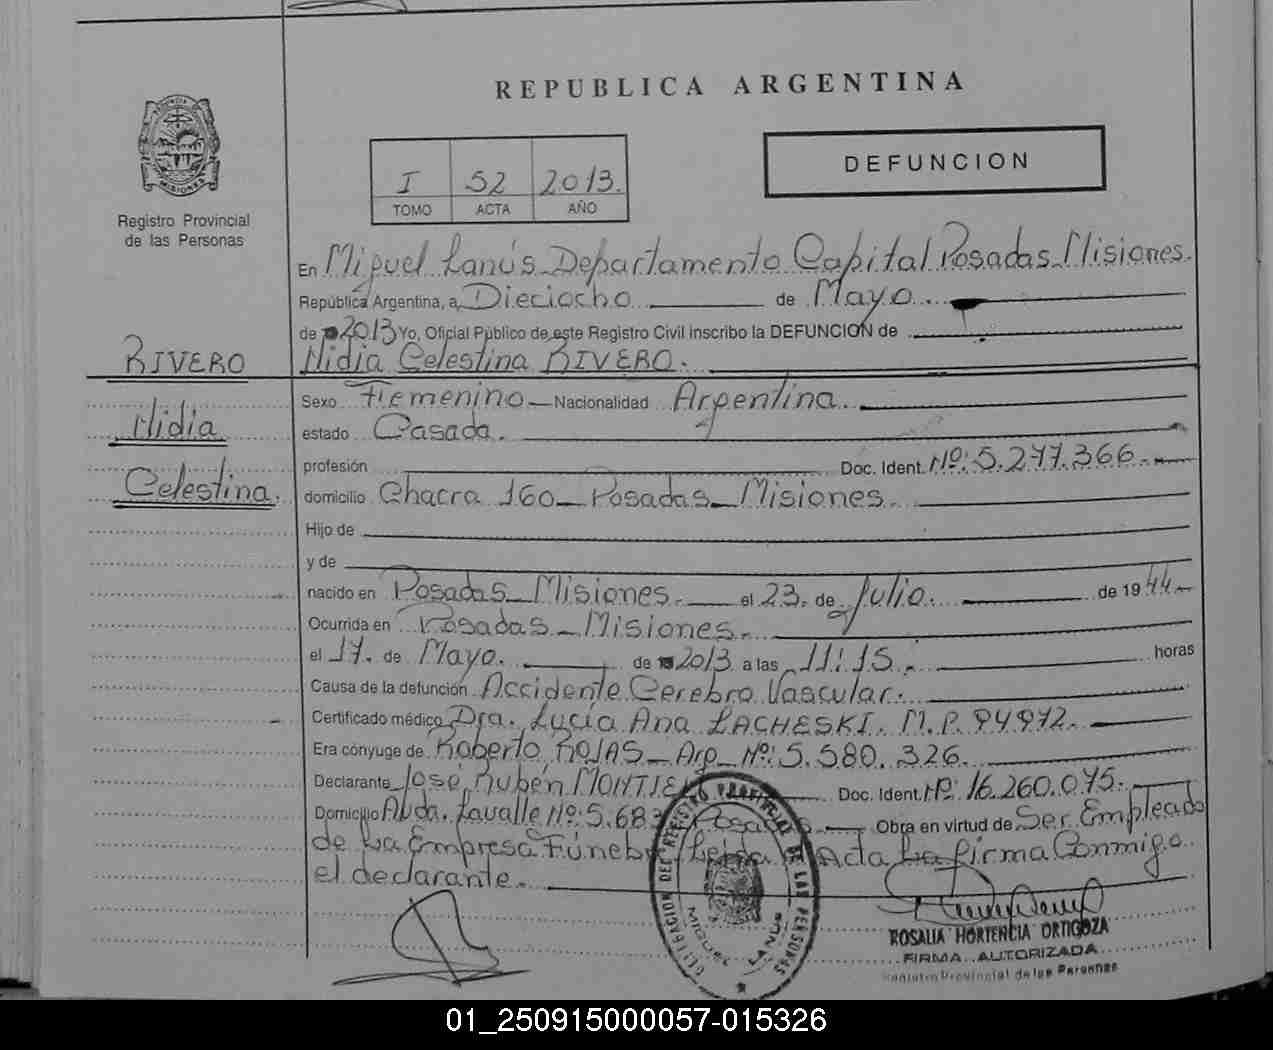 REPUBLICA ARGENTINA
PROVINCIA DE
MISIONES
Registro Provincial
de las Personas
I 52 2013.
TOMO ACTA AÑO
DEFUNCION
En Miguel Lanús - Departamento Capital Posadas - Misiones.
República Argentina, a Dieciocho de Mayo.
de 2013 Yo, Oficial Público de este Registro Civil inscribo la DEFUNCION de
Nidia Celestina RIVERO.
RIVERO
Nidia
Celestina.
Sexo Femenino - Nacionalidad Argentina.
estado Casada.
profesión Doc. Ident. Nº: 5.277.366.-
domicilio Chacra 160 - Posadas - Misiones.
Hijo de
y de
nacido en Posadas - Misiones. el 23. de Julio. de 1944.-
Ocurrida en Posadas - Misiones.
el 17. de Mayo. de 2013 a las 11:15. horas
Causa de la defunción Accidente Cerebro Vascular.
Certificado médico Dra. Lucía Ana LACHESKI. M.P. 94972.
Era cónyuge de Roberto ROJAS - Arg. Nº: 5.580.326.
Declarante José Rubén MONTIEL Doc. Ident. Nº: 16.260.075.
Domicilio Avda. Lavalle Nº: 5.683 Posadas. Obra en virtud de Ser Empleado
de La Empresa Fúnebre Leída Acta La firma Conmigo
el declarante.
DELEGACION DEL REGISTRO PROVINCIAL DE LAS PERSONAS
MIGUEL LANUS
ROSALIA HORTENCIA ORTIGOZA
FIRMA AUTORIZADA
Registro Provincial de las Personas
01_250915000057-015326